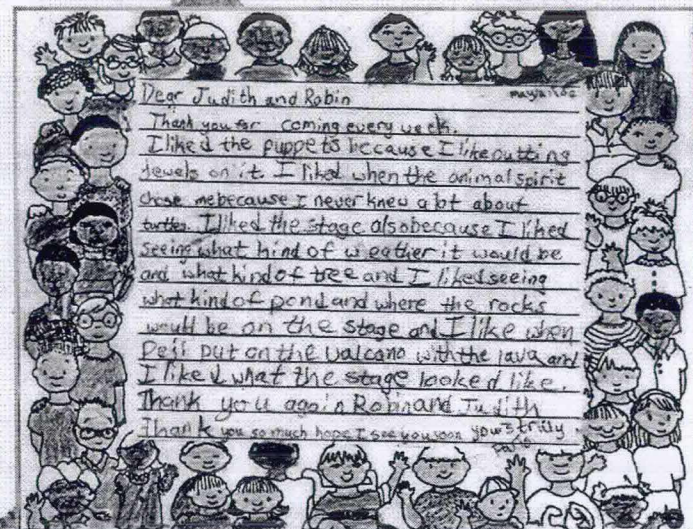 Dear Judith and Robin
Thank you for coming every week.
I liked the puppets because I like putting
Jewels on it. I liked when the animal spirit
chose me because I never knew a lot about
turtles. I liked the stage also because I liked
seeing what kind of weather it would be
and what kind of tree and I liked seeing
what kind of pond and where the rocks
would be on the stage and I like when
put on the valcano with the lava and
I liked what the stage looked like.
Thank you again Robin and Judith
Thank you so much hope I see you soon yours truly